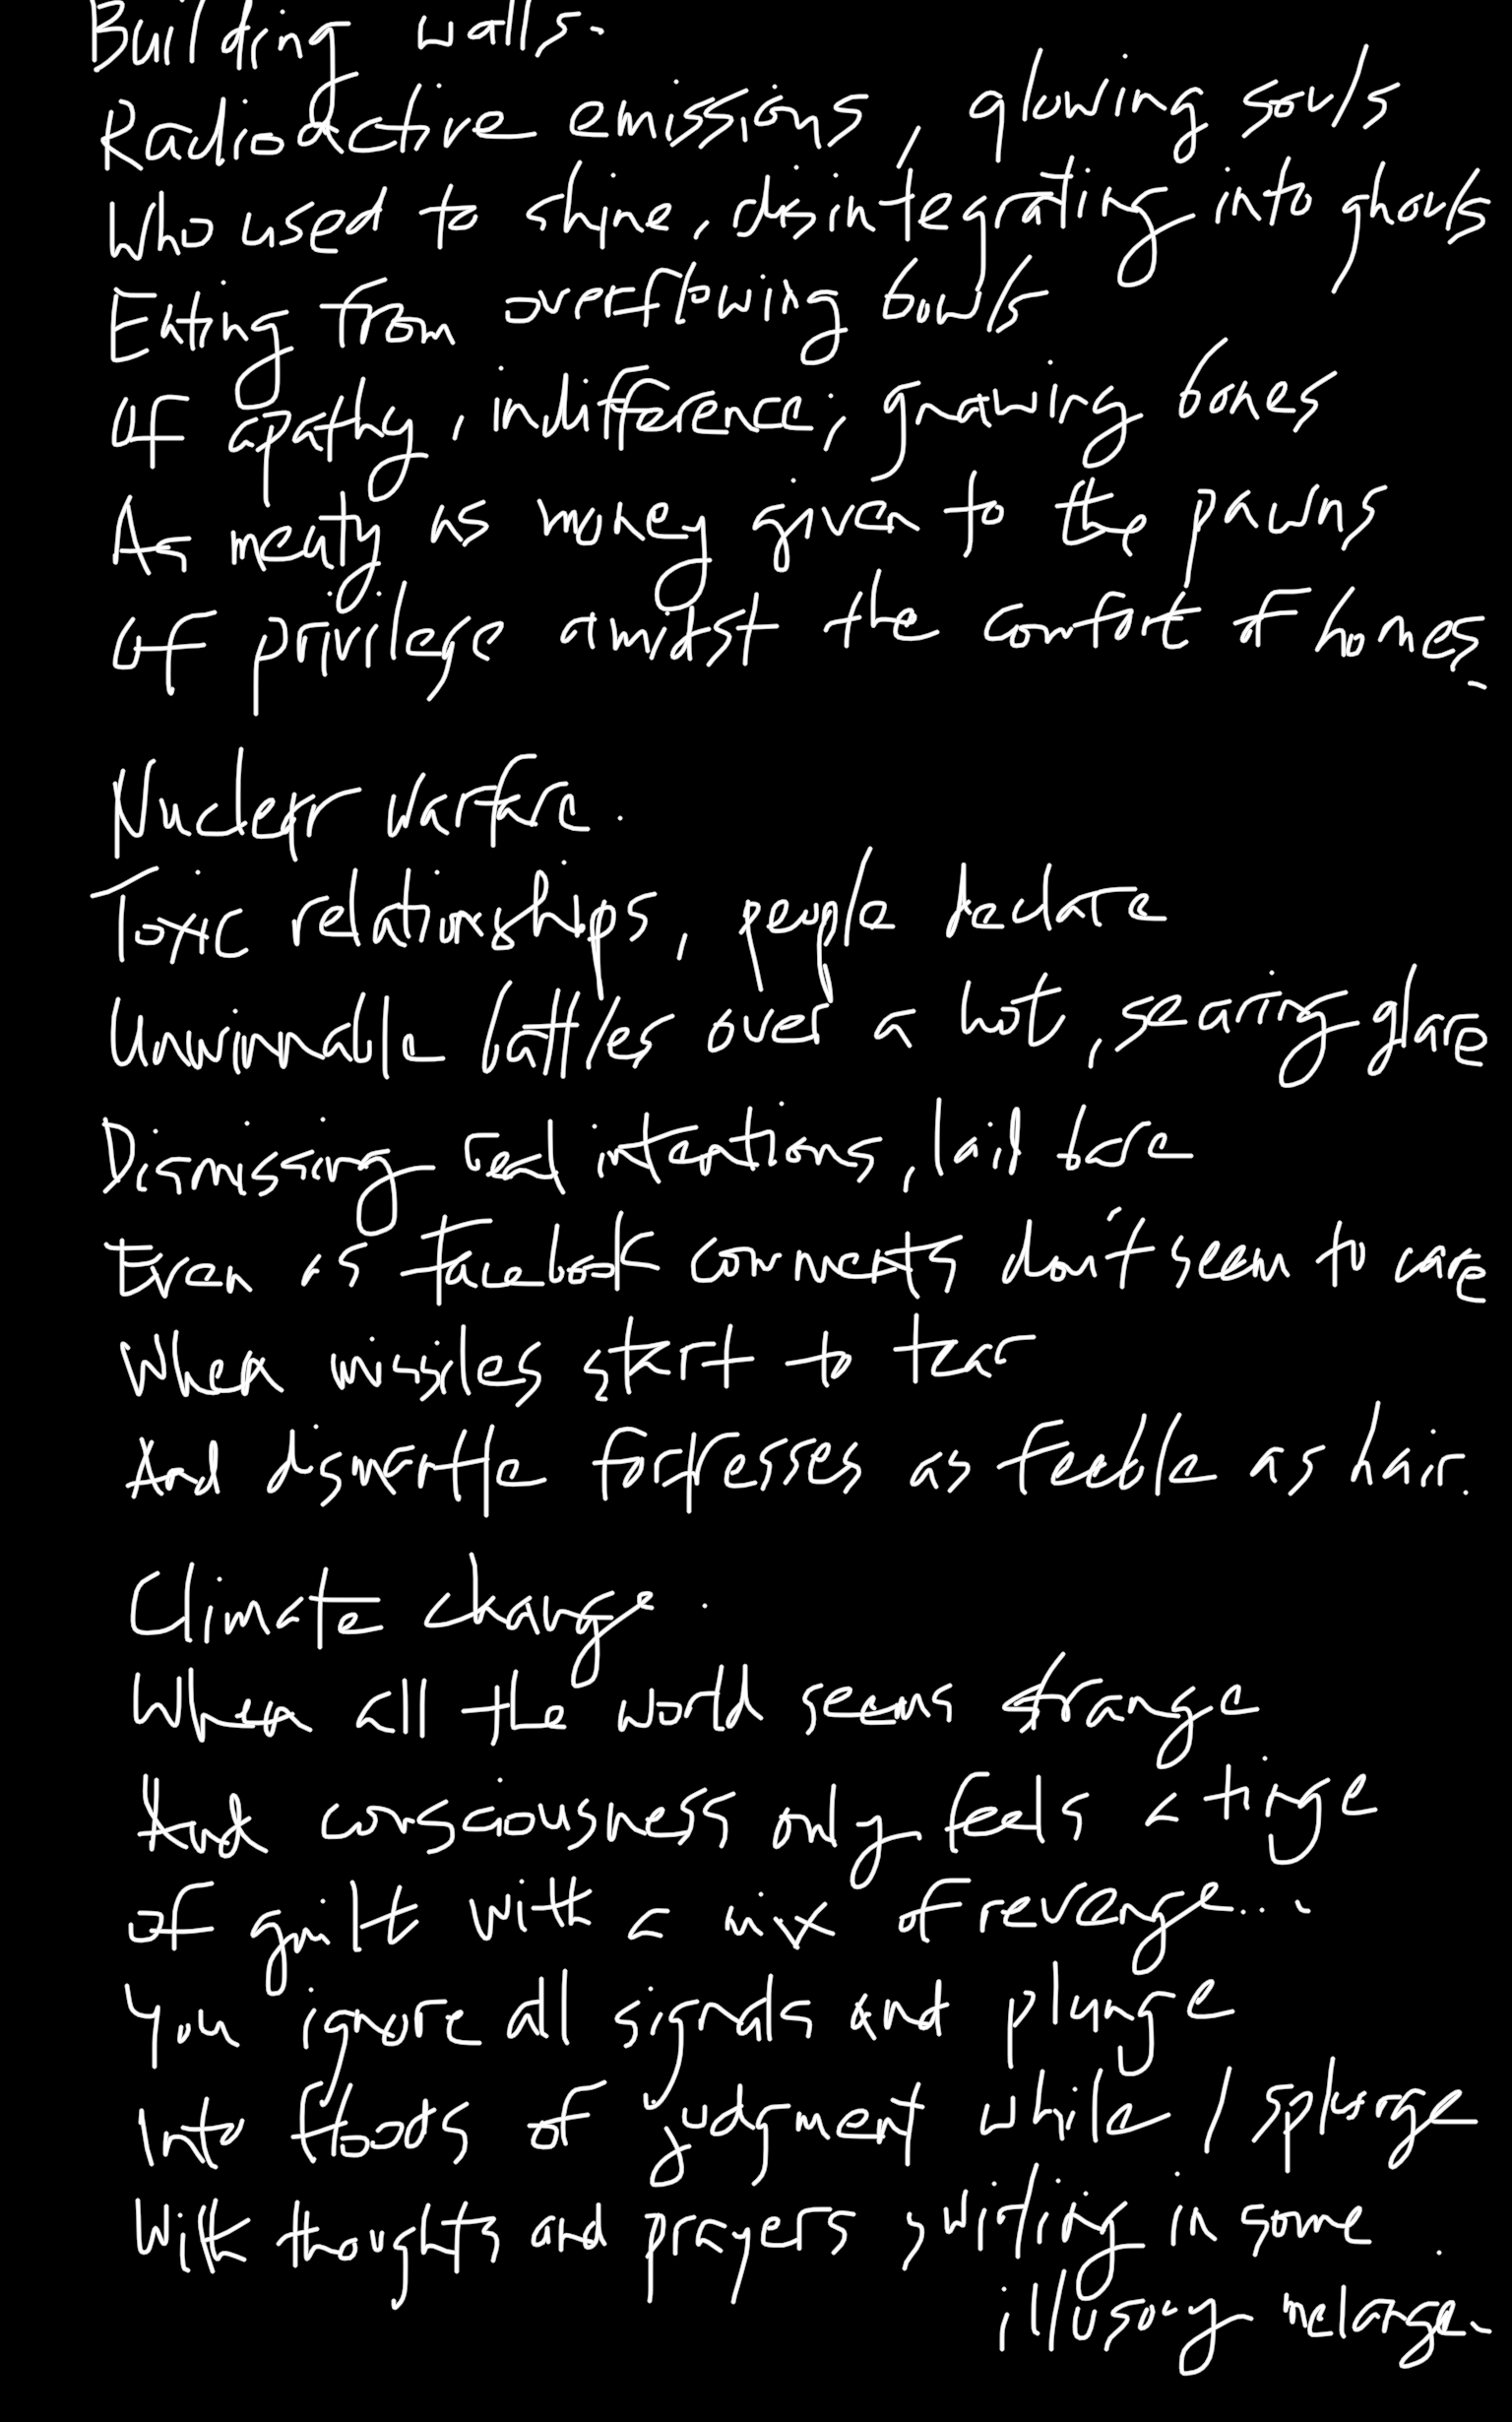 Building walls.
Radioactive emissions, glowing souls
Who used to shine, disintegrating into ghouls
Eating from overflowing bowls
Of apathy, indifference; gnawing bones
As meaty as money given to the pawns
Of privilege amidst the comfort of homes.
Nuclear warfare.
Toxic relationships, people declare
Unwinnable battles over a hot, searing glare
Dismissing real intentions, laid bare
Even as Facebook comments don't seem to care
When missiles start to tear
And dismantle fortresses as feeble as hair.
Climate change.
When all the world seems strange
And consciousness only feels a tinge
Of guilt with a mix of revenge...
You ignore all signals and plunge
Into floods of judgment while I splurge
With thoughts and prayers swirling in some
illusory melange.